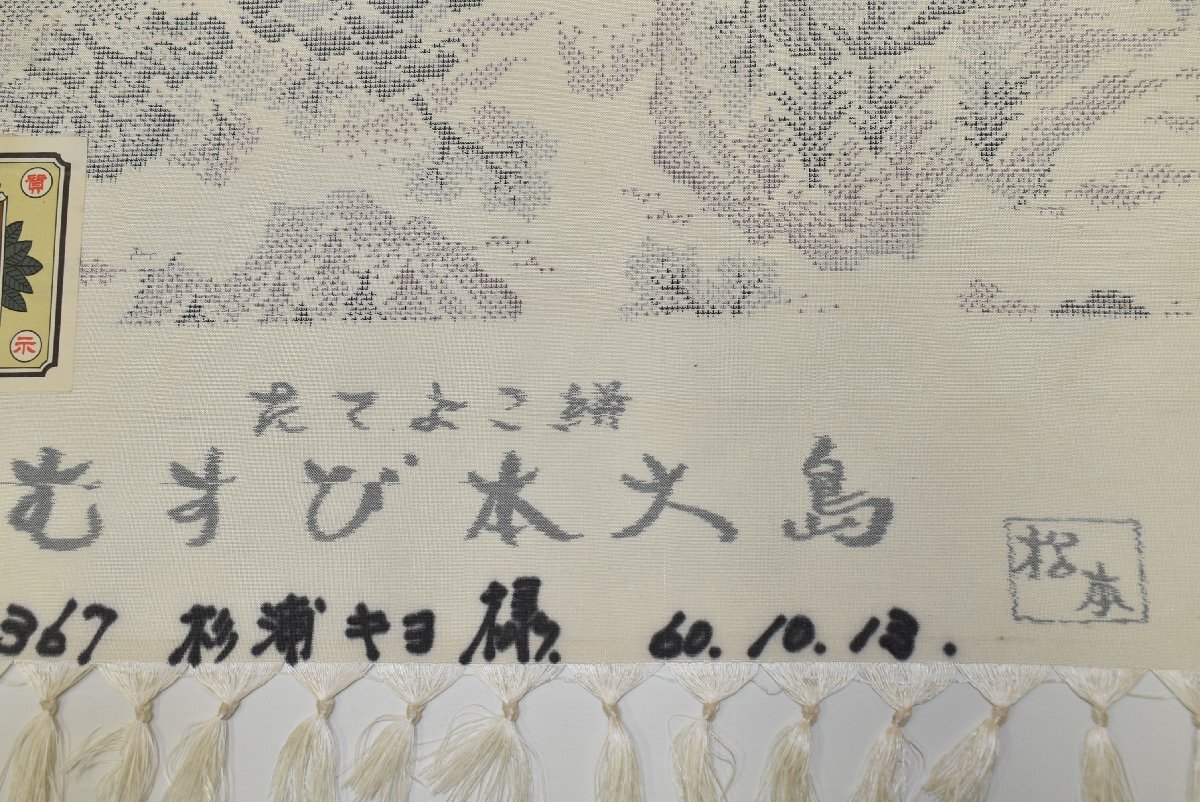 質
示
たてよこ絣
むすび本大島
367 杉浦キヨ様 60.10.13.